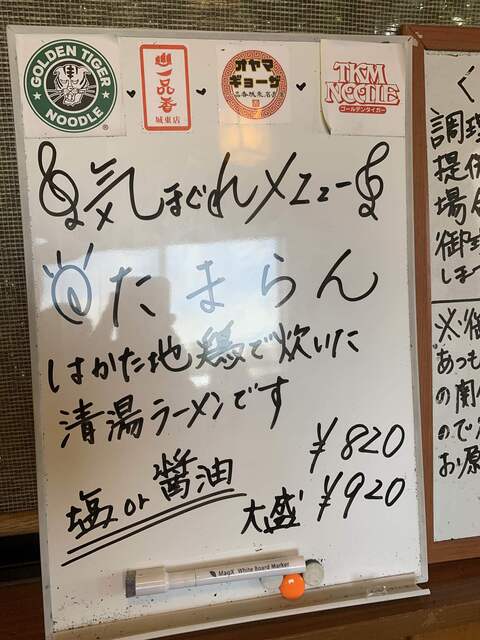 GOLDEN TIGER
NOODLE
®
一品香
城東店
オヤマ
ギョーザ
TKM
NOODLE
ゴールデンタイガー
気まぐれメニュー
たまらん
はかた地鶏で炊いた
清湯ラーメンです
¥820
塩 or 醤油
大盛 ¥920
MagX White Board Marker
く
調理
提供
場合
御
しま
※御
あつも
の関
ので
お願